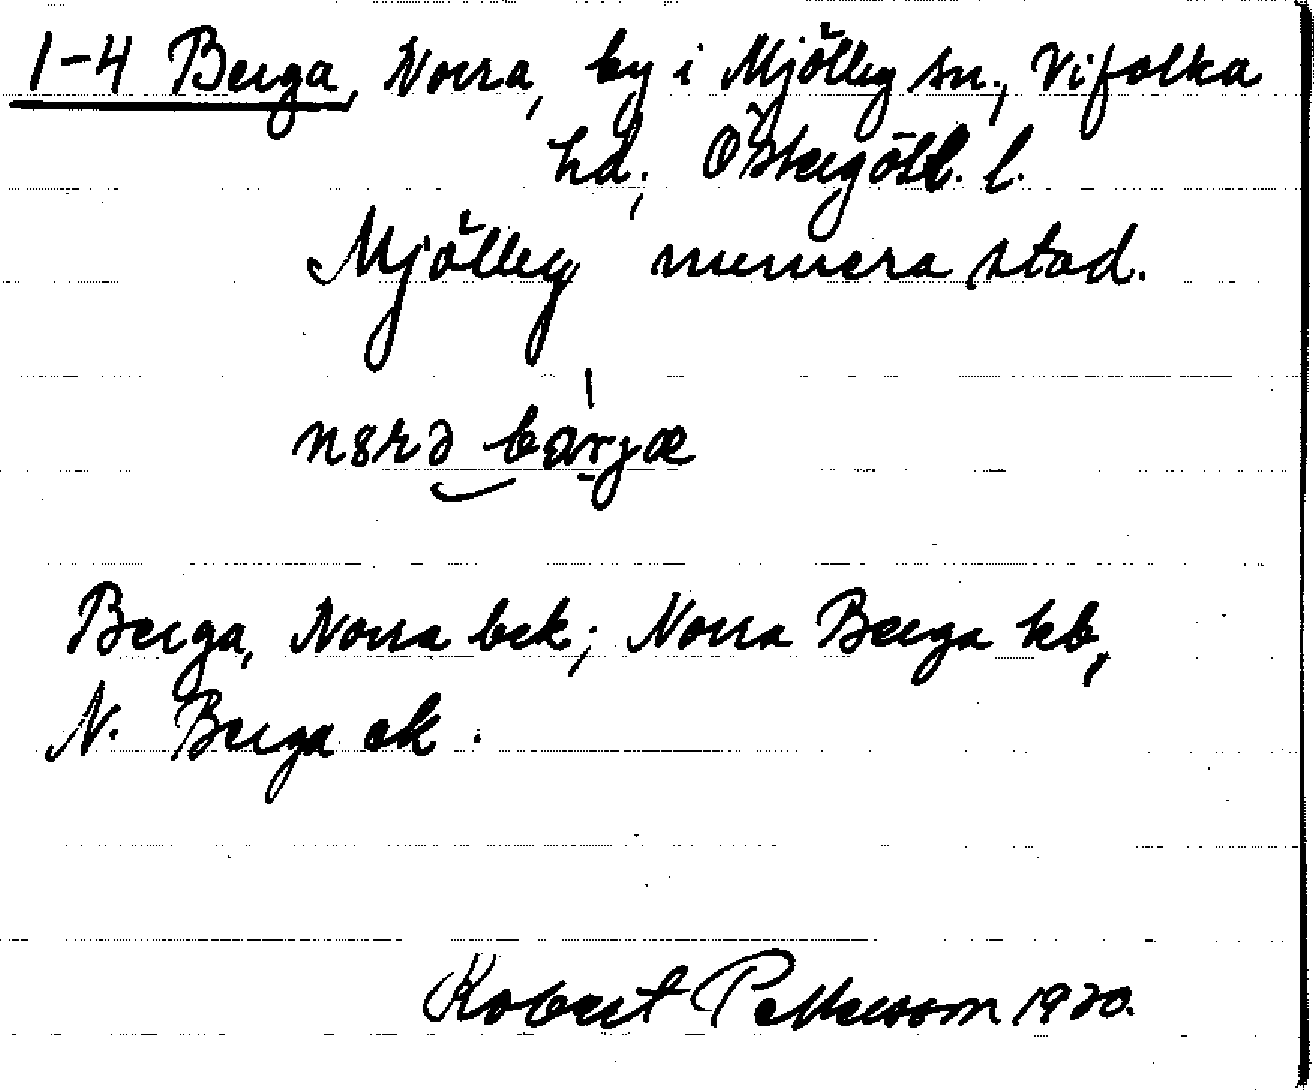 1-4 Berga, Norra, by i Mjölby sn, Vifolka
hd; Östergötl. l.
Mjölby numera stad.
Berga, Norra bek; Norra Berga kb,
N. Berga ek.
Robert Pettersson 1920.